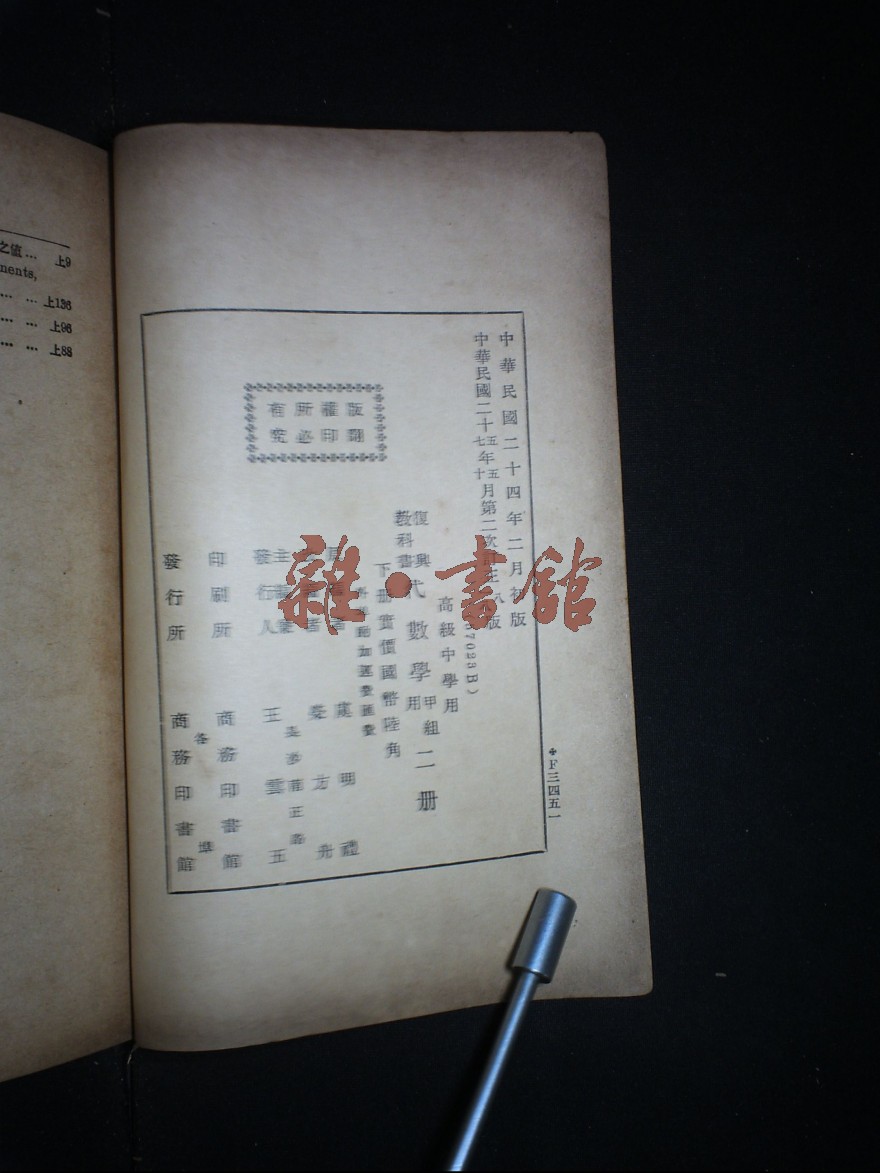 之值… 上9
nents,
… … 上136
… … 上96
… … 上88
中華民國二十四年二月初版
中華民國二十五年五月第二次訂正
七 十
版
7023B)
高級中學用
復興
教科書
代數學
甲組
用
二册
下册實價國幣陸角
外埠酌加運費匯費
虞明禮
榮方舟
主編兼
發行人
王雲五
長沙南正路
印刷所
商務印書館
發行所
商務印書館
各埠
版權所有
翻印必究
F三四五一
雜·書館